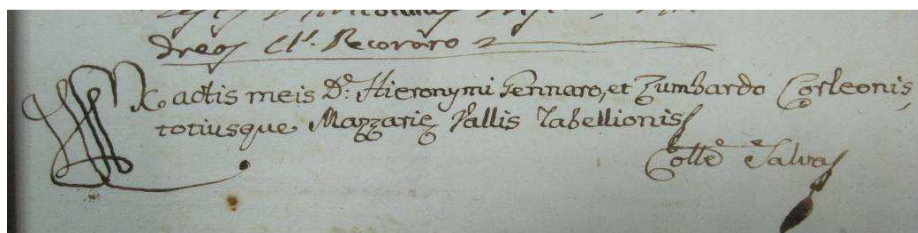 dreas Cl.s Recordro
Ex actis meis D.ris Hieronymi Gennaro, et Zumbardo Corleonis,
totiusque Mazzarie Vallis Tabellionis
Coll.e Salva